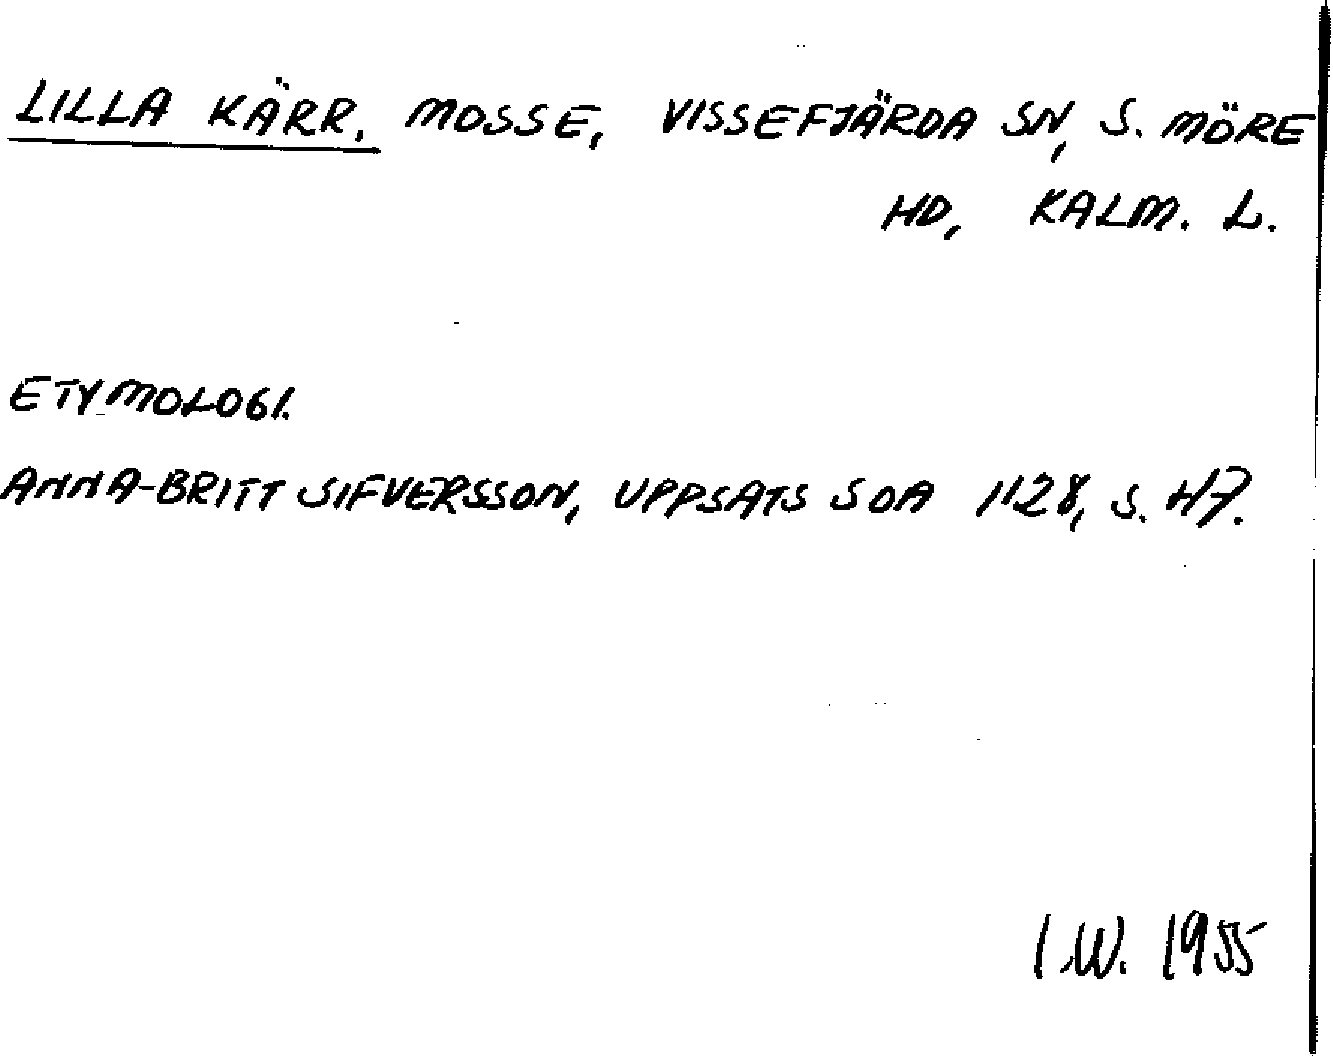 LILLA KÄRR, MOSSE, VISSEFJÄRDA SN, S. MÖRE
HD, KALM. L.
ETYMOLOGI.
ANNA-BRITT SIFVERSSON, UPPSATS SOA 1128, S. 47.
I.W. 1955